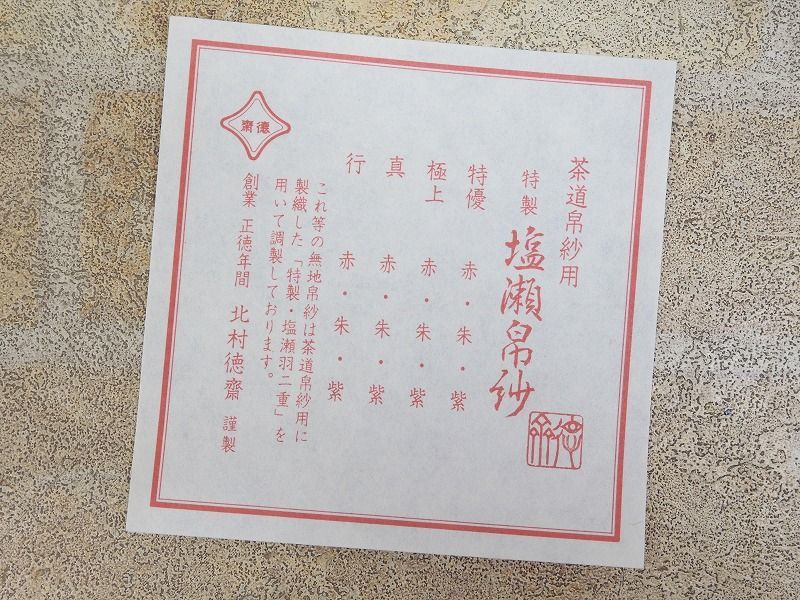 茶道帛紗用
特製 塩瀬帛紗
徳斎
特優 赤・朱・紫
極上 赤・朱・紫
真 赤・朱・紫
行 赤・朱・紫
これ等の無地帛紗は茶道帛紗用に
製織した「特製・塩瀬羽二重」を
用いて調製しております。
徳齋
創業 正徳年間 北村徳齋 謹製